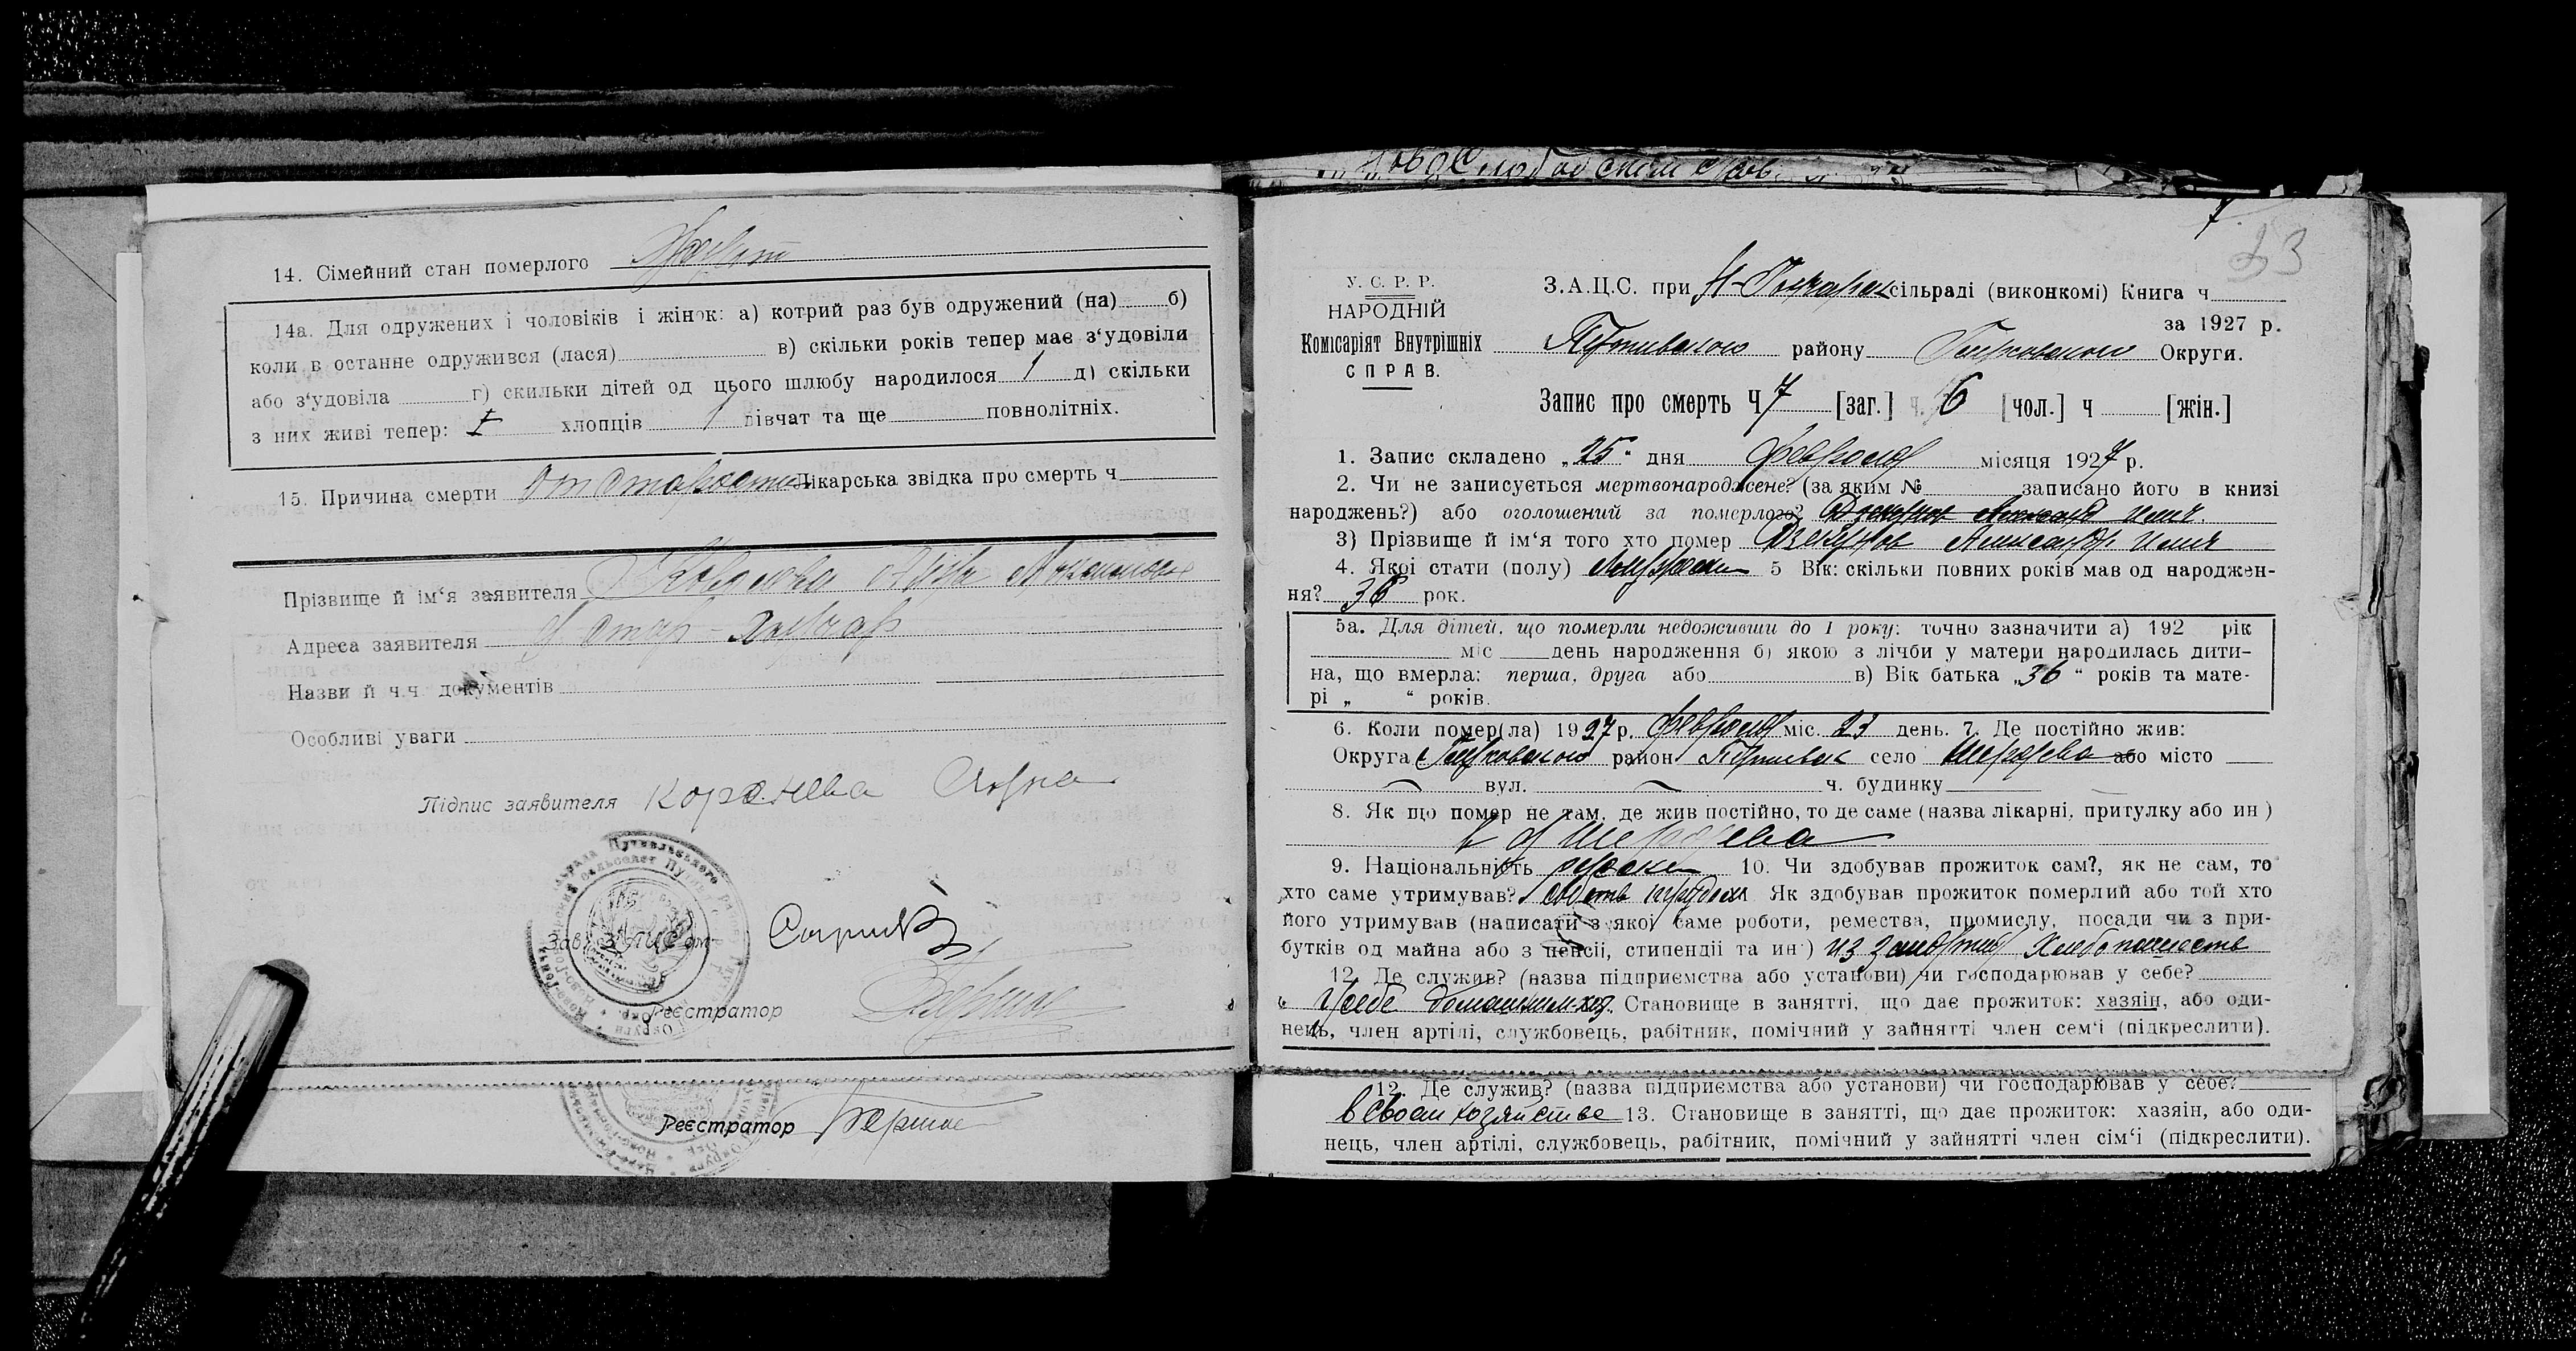 14. Сімейний стан померлого
14а. Для одружених і чоловіків і жінок: а) котрий раз був одружений (на) б)
коли в останне одружився (лася) в) скільки років тепер має з‘удовіли
або з‘удовіла г) скильки дітей од цього шлюбу народилося 1 д) скільки
з них живі тепер: I хлопців 1 дівчат та ще повнолітніх.
15. Причина смерти от старости Лікарська звідка про смерть ч
Прізвище й ім‘я заявителя
Адреса заявителя
Назви й ч.ч. документів
Особливі уваги
Підпис заявителя Коренева
Зав. ЗАЦС‘ом
Реєстратор
Реєстратор
У. С. Р. Р.
НАРОДНІЙ
Комісаріят Внутрішніх
СПРАВ.
23
З.А.Ц.С. при сільраді (виконкомі) Книга ч
за 1927 р.
Путивльского району Глуховского Округи.
Запис про смерть Ч 7 [заг.] ч. 6 [чол.] ч [жін.]
1. Запис складено „25“ дня февраля місяця 1927 р.
2. Чи не записується мертвонароджене? (за яким № записано його в книзі
народжень?) або оголошений за померлого?
3) Прізвище й ім‘я того хто помер Александр Ильич
4. Якої стати (полу) мужской 5 Вік: скільки повних років мав од народжен-
ня? 36 рок.
5а. Для дітей, що померли недоживши до 1 року: точно зазначити а) 192 рік
міс день народження б) якою з лічби у матери народилась дити-
на, що вмерла: перша, друга або в) Вік батька „36“ років та мате-
рі „ “ років.
6. Коли помер(ла) 1927 р. февраля міс. 23 день. 7. Де постійно жив:
Округа Глуховского район Путивльск село або місто
вул. ч. будинку
8. Як що помер не там, де жив постійно, то де саме (назва лікарні, притулку або ин)
9. Національність русск 10. Чи здобував прожиток сам?, як не сам, то
хто саме утримував? Як здобував прожиток померлий або той хто
його утримував (написати з якої саме роботи, ремества, промислу, посади чи з при-
бутків од майна або з пенсії, стипендії та ин) из земледелия Хлебопашеств
12. Де служив? (назва підприємства або установи) чи господарював у себе?
у себе домашнем хоз. Становище в занятті, що дає прожиток: хазяін, або оди-
нець, член артілі, службовець, рабітник, помічний у зайнятті член сем‘і (підкреслити).
12. Де служив? (назва підприємства або установи) чи господарював у себе?
в своем хозяйстве 13. Становище в занятті, що дає прожиток: хазяін, або оди-
нець, член артілі, службовець, рабітник, помічний у зайнятті член сім‘і (підкреслити).